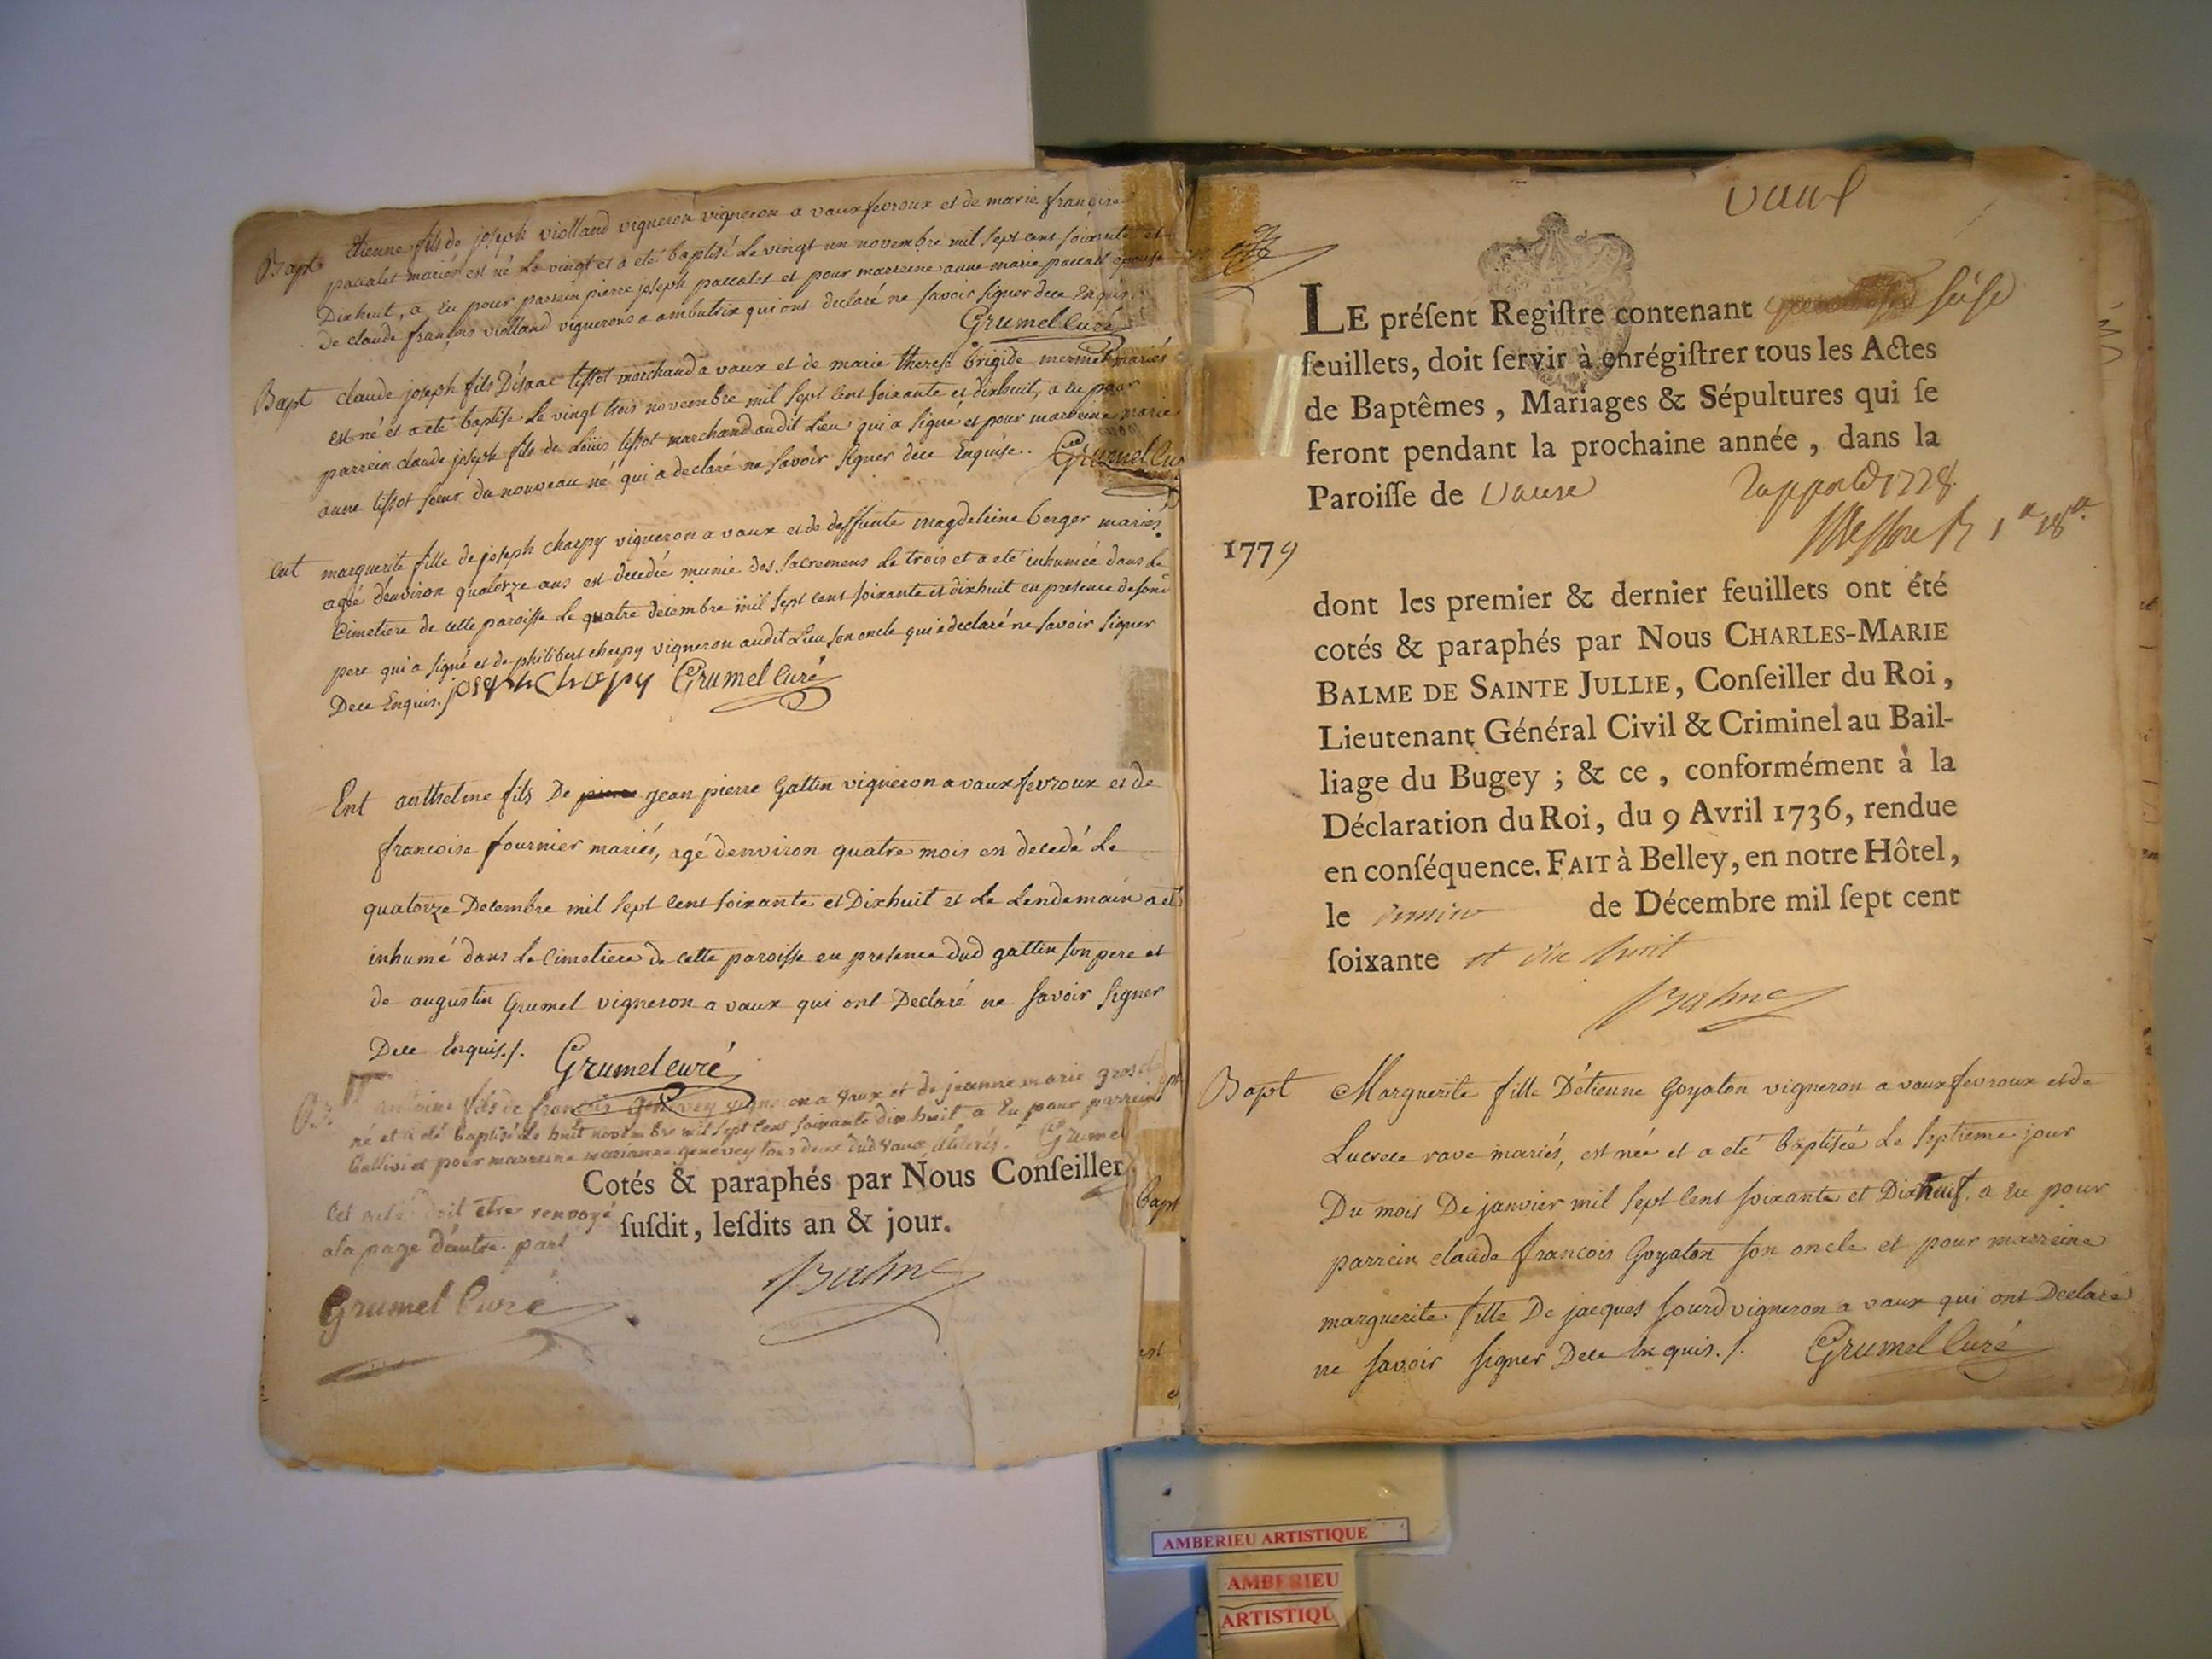 Bapt etienne fils de joseph violland vigneron vigneron a vaux fevroux et de marie francoise
paccalet mariés est né le vingt et a eté baptisé le vingt un novembre mil sept cent soixante et
Dixhuit, a eu pour parrein pierre joseph paccalet et pour marreine anne marie paccalet epouse
de claude françois violland vignerons a ambutrix qui ont declaré ne savoir signer dece Enquis.
Grumel Curé
Bapt claude joseph fils D'isaac tissot marchand a vaux et de marie therese brigide mermet mariés
est né et a eté baptisé le vingt trois novembre mil sept cent soixante et dixhuit, a eu pour
parrein claude joseph fils de Loüis tissot marchand audit Lieu qui a signé et pour marreine marie
anne tissot soeur du nouveau né qui a declaré ne savoir signer dece Enquise.. Grumel Cu
Ent marguerite fille de joseph charpy vigneron a vaux et de deffunte magdeleine berger mariés
agée d'environ quatorze ans est decedée munie des sacremens le trois et a eté inhumée dans le
Cimetiere de cette paroisse le quatre decembre mil sept cent soixante et dixhuit en presence de son
pere qui a signé et de philibert charpy vigneron audit Lieu son oncle qui a declaré ne savoir signer
Dece Enquis. joseph Charpy Grumel Curé
Ent anthelme fils De pierre jean pierre Gallin vigneron a vaux fevroux et de
francoise fournier mariés, agé d'environ quatre mois en decedé le
quatorze Decembre mil sept Cent soixante et Dixhuit et le Lendemain a eté
inhumé dans le Cimetiere de cette paroisse en presence dud gallin son pere et
de augustin Grumel vigneron a vaux qui ont Declaré ne savoir signer
Dece Enquis./. Grumel curé
antoine fils de francois Genevey vigneron a vaux et de jeanne marie gros
né et a eté baptisé le huit novembre mil sept Cent soixante dix huit a Eu pour parrein
et pour marreine marianne genevey tous deux dud vaux Grumel
Cotés & paraphés par Nous Conseiller
susdit, lesdits an & jour.
Cet acte doit etre renvoyé
a la page d'autre part
Grumel Curé
Balme
Bapt
vaux
LE présent Registre contenant seise
feuillets, doit servir à enrégistrer tous les Actes
de Baptêmes, Mariages & Sépultures qui se
feront pendant la prochaine année, dans la
Paroisse de vaux
1779
dont les premier & dernier feuillets ont été
cotés & paraphés par Nous CHARLES-MARIE
BALME DE SAINTE JULLIE, Conseiller du Roi,
Lieutenant Général Civil & Criminel au Bail-
liage du Bugey ; & ce, conformément à la
Déclaration du Roi, du 9 Avril 1736, rendue
en conséquence. FAIT à Belley, en notre Hôtel,
le premier de Décembre mil sept cent
soixante et dix huit
Balme
Bapt Marguerite fille D'etienne Goyaton vigneron a vaux fevroux et de
Lucrece rave mariés, est née et a eté baptisée le septieme jour
Du mois De janvier mil sept Cent soixante et Dixneuf, a eu pour
parrein claude francois Goyaton son oncle et pour marreine
marguerite fille De jacques sourd vigneron a vaux qui ont Declaré
ne savoir signer Dece Enquis./. Grumel Curé
AMBERIEU ARTISTIQUE
AMBERIEU
ARTISTIQU